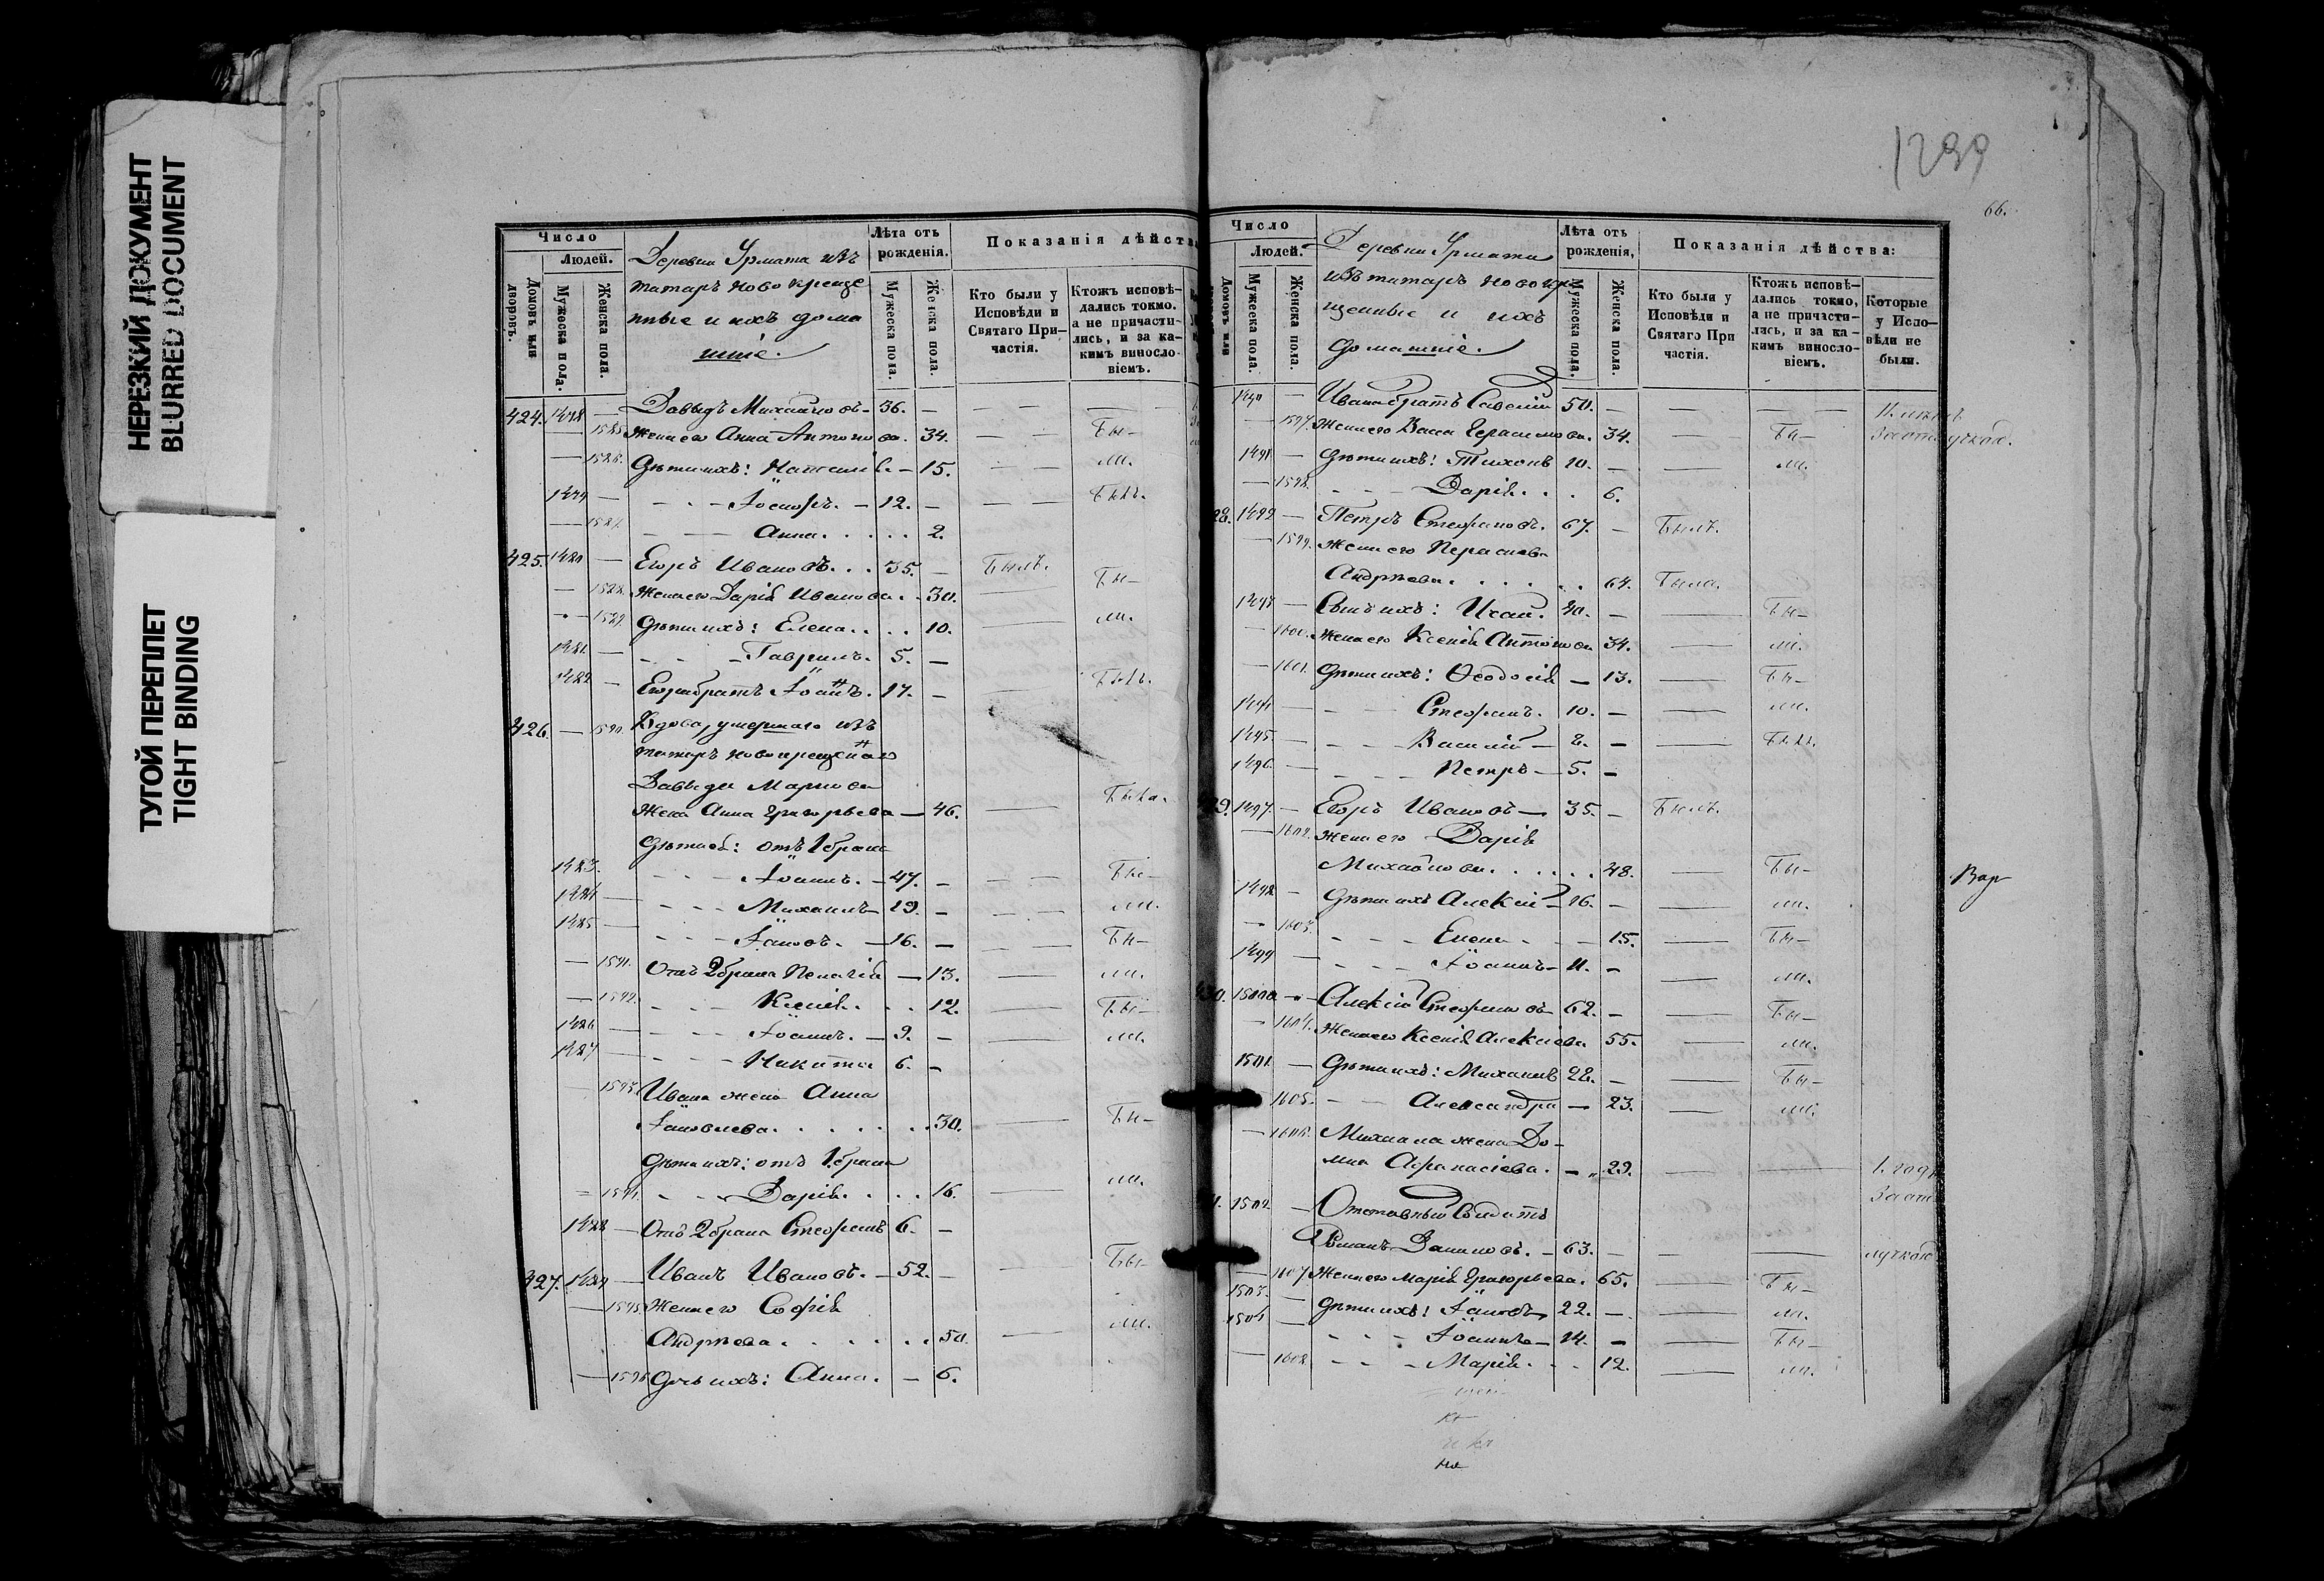 НЕРЕЗКИЙ ДОКУМЕНТ
BLURRED DOCUMENT
ТУГОЙ ПЕРЕПЛЕТ
TIGHT BINDING
Число
Людей.
Домовъ или дворовъ.
Мужеска пола.
Женска пола.
Деревни Урмата изъ
татаръ новокреще
нные и ихъ дома
шніе.
Лѣта отъ рожденія.
Мужеска пола.
Женска пола.
Показанія дѣйств
Кто были у Исповѣди и Святаго При-частія.
Ктожъ исповѣ-дались токмо. а не причасти-лись, и за ка-кимъ винosло-віемъ.
424. 1478 — Давыдъ Михайловъ — 36. —
— 1585 Жена его Анна Антонова. 34. Бы-
— 1586. Дѣти ихъ: Наталія — 15. ли.
1479 — Іосифъ. — 12. — Былъ.
— 1587. Анна . . . . 2.
425. 1480 — Егоръ Ивановъ . . . 35. — Былъ.
— 1588. Жена его Дарія Иванова . . 30. Бы-
— 1589. Дѣти ихъ: Елена . . . . 10. ли.
1481. — Гаврилъ. 5. —
1482 — Егора братъ Іоаннъ. 17. — Былъ.
426. — 1590. Вдова, умершаго изъ
татаръ новокрещеннаго
Давыда Маркова
Жена Анна Григорьева — 46. Была.
Дѣти ея: отъ 1 брака
1483. Іоаннъ. — 47. — Бы-
1484 — Михаилъ — 19. — ли.
1485 — Іаковъ. — 16. — Бы-
— 1591. Отъ 2 брака Пелагія — 13. ли.
— 1592. Ксенія . . . 12. Бы-
1486 — Іоаннъ. — 9. — ли.
1487 — Никита 6. —
— 1593. Ивана жена Анна
Іаковлева . . . . . . . 30. Бы-
Дѣти ихъ: отъ 1 брака
— 1594. Дарія . . . . 16. ли.
1488 — Отъ 2 брака Стефанъ 6. —
427. 1489 — Иванъ Ивановъ. — 52. — Бы-
— 1595. Жена его Софія
Андреева . . . . . . 50. ли.
— 1596 Дочь ихъ: Анна. — 6.
1299
66.
Число
Людей.
Домовъ или
Мужеска пола.
Женска пола.
Деревни Урмата
изъ татаръ новокре
щенные и ихъ
домашніе.
Лѣта отъ рожденія,
Мужеска пола.
Женска пола.
Показанія дѣйства:
Кто были у Исповѣди и Святаго При частія.
Ктожъ исповѣ-дались токмо, а не причасти-лись, и за ка-кимъ винoсло-віемъ.
Которые у Испо-вѣди не были.
1490 — Ивана братъ Савелій 50. —
— 1597. Жена его Васса Герасимова. 34. Бы- За отлучкою.
1491 — Дѣти ихъ: Тихонъ 10. — ли.
— 1598. Дарія . . . 6.
28. 1492 — Петръ Стефановъ. 67. — Былъ.
— 1599. Жена его Параскева
Андреева . . . . . . 64. Была.
1493 — Сынъ ихъ: Исай. 40. — Бы-
— 1600. Жена его Ксенія Антонова 34. ли.
— 1601. Дѣти ихъ: Ѳеодосія — 13. Бы-
1494 — Стефанъ. 10. — ли.
1495 — Василій — 8. — Былъ.
1496. — Петръ — 5. —
29. 1497. — Егоръ Ивановъ — 35. — Былъ.
— 1602. Жена его Дарія
Михайлова . . . . . . 48. Бы-
Вар
1498 — Дѣти ихъ Алексій — 16. — ли.
— 1603. Елена — 15. Бы-
1499 Іоаннъ — 11. — ли.
430. 1500 — Алексій Стефановъ 62. — Бы-
— 1604. Жена его Ксенія Алексіева 55. ли.
1501. — Дѣти ихъ: Михаилъ 28. — Бы-
1605. Александра — 23. ли.
— 1606. Михаила жена До-
мна Афанасіева. — 29. 1. годъ
1502. — Отставный Солдатъ За от
Романъ Даниловъ. — 63. — лучкою
— 1607 Жена его Марія Григорьева. 65. Бы-
1503. — Дѣти ихъ: Іаковъ 22. — ли.
1504 — Іоаннъ — 14. — Бы-
— 1608. Марія . . . 12. ли.